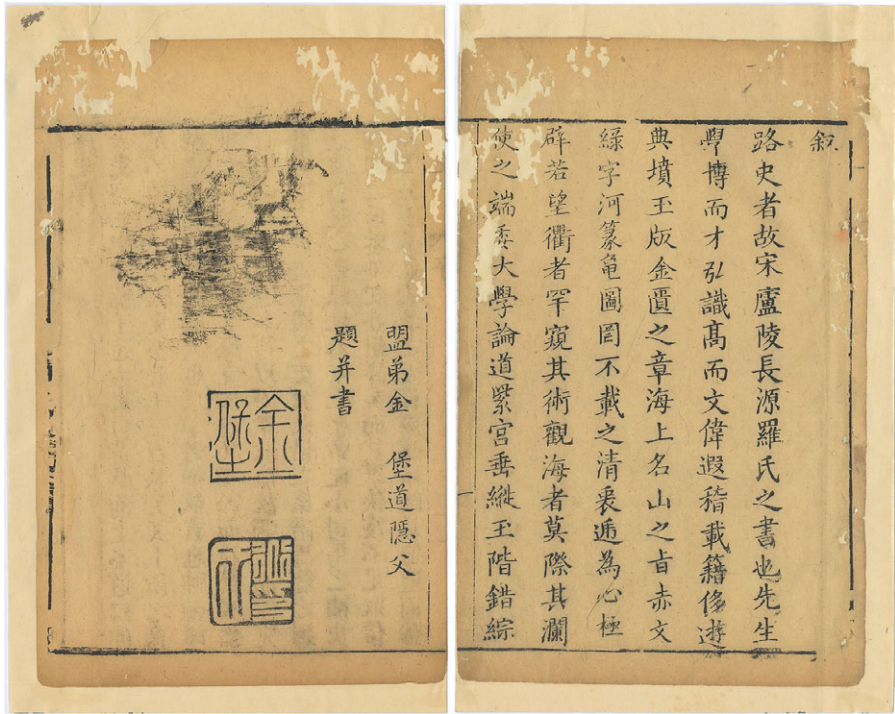 叙
路史者故宋廬陵長源羅氏之書也先生
學博而才弘識髙而文偉遐稽載籍侈遊
典墳玉版金匱之章海上名山之旨赤文
綠字河篆龜圖罔不載之清衷逓為心極
辟若望衢者罕窺其術觀海者莫際其瀾
使之端委大學論道紫宮垂縰玉階錯綜
盟弟金 堡道隱父
題并書
金堡